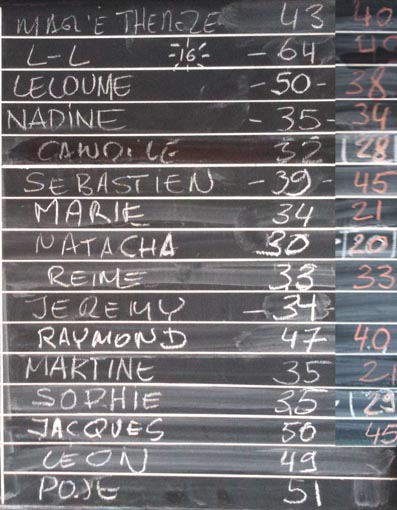 MARIE THEREZE 43 40
L-L -16- - 64 40
LELOUME - 50 - 38
NADINE - 35 - 34
CANDILE 32 28
SEBASTIEN - 39 - 45
MARIE 34 21
NATACHA 30 20
REINE 33 33
JEREMY - 34 -
RAYMOND 47 40
MARTINE 35 21
SOPHIE 35 29
JACQUES 50 45
LEON 49
POSE 51